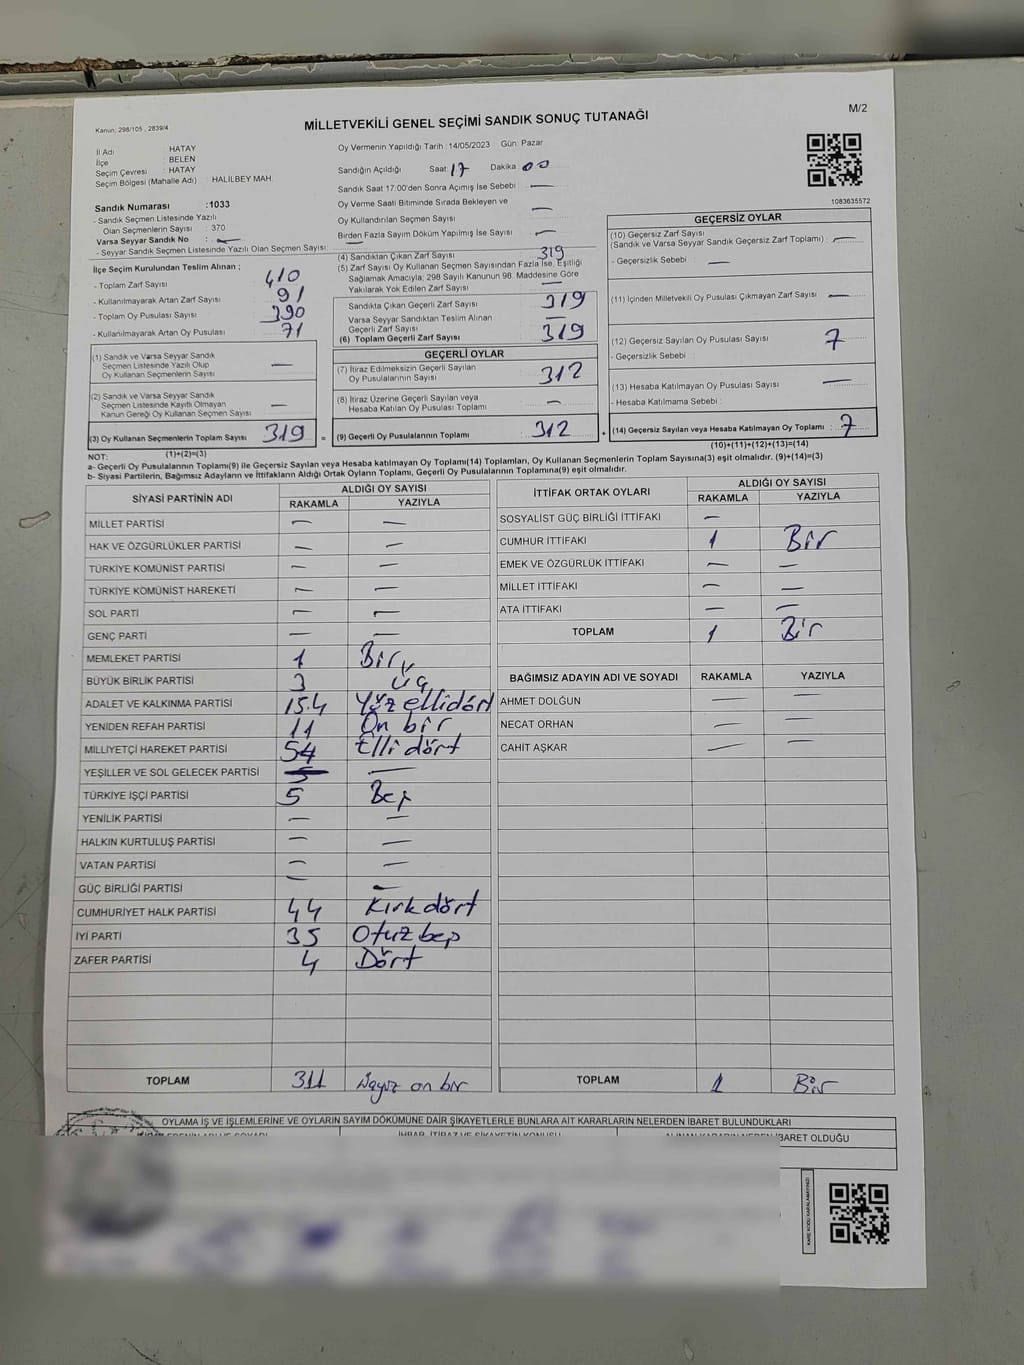 M/2
Kanun: 298/105 , 2839/4
MİLLETVEKİLİ GENEL SEÇİMİ SANDIK SONUÇ TUTANAĞI
İl Adı : HATAY
İlçe : BELEN
Seçim Çevresi : HATAY
Seçim Bölgesi (Mahalle Adı) : HALİLBEY MAH.
Sandık Numarası :1033
- Sandık Seçmen Listesinde Yazılı
Olan Seçmenlerin Sayısı : 370
Varsa Seyyar Sandık No : —
- Seyyar Sandık Seçmen Listesinde Yazılı Olan Seçmen Sayısı: —
Oy Vermenin Yapıldığı Tarih :14/05/2023 Gün: Pazar
Sandığın Açıldığı Saat: 17 Dakika 00
Sandık Saat 17:00'den Sonra Açımış İse Sebebi : —
Oy Verme Saati Bitiminde Sırada Bekleyen ve
Oy Kullandırılan Seçmen Sayısı : —
Birden Fazla Sayım Döküm Yapılmış İse Sayısı : —
1083635572
İlçe Seçim Kurulundan Teslim Alınan ;
- Toplam Zarf Sayısı : 410
- Kullanılmayarak Artan Zarf Sayısı : 91
- Toplam Oy Pusulası Sayısı : 390
- Kullanılmayarak Artan Oy Pusulası : 71
(1) Sandık ve Varsa Seyyar Sandık
Seçmen Listesinde Yazılı Olup
Oy Kullanan Seçmenlerin Sayısı —
(2) Sandık ve Varsa Seyyar Sandık
Seçmen Listesinde Kayıtlı Olmayan
Kanun Gereği Oy Kullanan Seçmen Sayısı —
(3) Oy Kullanan Seçmenlerin Toplam Sayısı 319 =
(1)+(2)=(3)
(4) Sandıktan Çıkan Zarf Sayısı : 319
(5) Zarf Sayısı Oy Kullanan Seçmen Sayısından Fazla İse, Eşitliği
Sağlamak Amacıyla; 298 Sayılı Kanunun 98. Maddesine Göre
Yakılarak Yok Edilen Zarf Sayısı : —
Sandıkta Çıkan Geçerli Zarf Sayısı : 319
Varsa Seyyar Sandıktan Teslim Alınan
Geçerli Zarf Sayısı : —
(6) Toplam Geçerli Zarf Sayısı : 319
GEÇERLİ OYLAR
(7) İtiraz Edilmeksizin Geçerli Sayılan
Oy Pusulalarının Sayısı : 312
(8) İtiraz Üzerine Geçerli Sayılan veya
Hesaba Katılan Oy Pusulası Toplamı : —
(9) Geçerli Oy Pusulalarının Toplamı : 312 +
GEÇERSİZ OYLAR
(10) Geçersiz Zarf Sayısı
(Sandık ve Varsa Seyyar Sandık Geçersiz Zarf Toplamı) : —
- Geçersizlik Sebebi : —
(11) İçinden Milletvekili Oy Pusulası Çıkmayan Zarf Sayısı : —
(12) Geçersiz Sayılan Oy Pusulası Sayısı : 7
- Geçersizlik Sebebi :
(13) Hesaba Katılmayan Oy Pusulası Sayısı : —
- Hesaba Katılmama Sebebi :
(14) Geçersiz Sayılan veya Hesaba Katılmayan Oy Toplamı : 7
(10)+(11)+(12)+(13)=(14)
NOT:
a- Geçerli Oy Pusulalarının Toplamı(9) ile Geçersiz Sayılan veya Hesaba katılmayan Oy Toplamı(14) Toplamları, Oy Kullanan Seçmenlerin Toplam Sayısına(3) eşit olmalıdır. (9)+(14)=(3)
b- Siyasi Partilerin, Bağımsız Adayların ve İttifakların Aldığı Ortak Oyların Toplamı, Geçerli Oy Pusulalarının Toplamına(9) eşit olmalıdır.
SİYASİ PARTİNİN ADI ALDIĞI OY SAYISI
RAKAMLA YAZIYLA
MİLLET PARTİSİ — —
HAK VE ÖZGÜRLÜKLER PARTİSİ — —
TÜRKİYE KOMÜNİST PARTİSİ — —
TÜRKİYE KOMÜNİST HAREKETİ — —
SOL PARTİ — —
GENÇ PARTİ — —
MEMLEKET PARTİSİ 1 Bir
BÜYÜK BİRLİK PARTİSİ 3 Üç
ADALET VE KALKINMA PARTİSİ 154 Yüzellidört
YENİDEN REFAH PARTİSİ 11 On bir
MİLLİYETÇİ HAREKET PARTİSİ 54 Elli dört
YEŞİLLER VE SOL GELECEK PARTİSİ — —
TÜRKİYE İŞÇİ PARTİSİ 5 Beş
YENİLİK PARTİSİ — —
HALKIN KURTULUŞ PARTİSİ — —
VATAN PARTİSİ — —
GÜÇ BİRLİĞİ PARTİSİ — —
CUMHURİYET HALK PARTİSİ 44 Kırkdört
İYİ PARTİ 35 Otuzbeş
ZAFER PARTİSİ 4 Dört
TOPLAM 311 üçyüz on bir
İTTİFAK ORTAK OYLARI ALDIĞI OY SAYISI
RAKAMLA YAZIYLA
SOSYALİST GÜÇ BİRLİĞİ İTTİFAKI —
CUMHUR İTTİFAKI 1 Bir
EMEK VE ÖZGÜRLÜK İTTİFAKI — —
MİLLET İTTİFAKI — —
ATA İTTİFAKI — —
TOPLAM 1 Bir
BAĞIMSIZ ADAYIN ADI VE SOYADI RAKAMLA YAZIYLA
AHMET DOLĞUN — —
NECAT ORHAN — —
CAHİT AŞKAR — —
TOPLAM 1 Bir
OYLAMA İŞ VE İŞLEMLERİNE VE OYLARIN SAYIM DÖKÜMÜNE DAİR ŞİKAYETLERLE BUNLARA AİT KARARLARIN NELERDEN İBARET BULUNDUKLARI
İHBAR, İTİRAZ VE ŞİKAYETİN KONUSU
İBARET OLDUĞU
KARE KODU KARALAMAYINIZ!